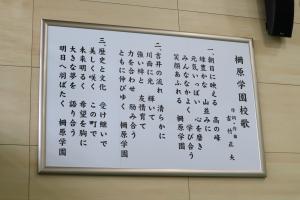 柵原学園校歌
作詞・作曲 吉村正夫
一、朝日に映える 高の峰
緑豊かな 山並みに
元気いっぱい 心を磨き
みんななかよく 学び合う
笑顔あふれる 柵原学園
二、吉井の流れ 清らかに
川面に光 輝いて
強い絆と 友情育て
力を合わせ 励み合う
ともに伸びゆく 柵原学園
三、歴史と文化 受け継いで
美しく咲く この町で
未来明るく 希望を胸に
大きな夢を 語り合う
明日へ羽ばたく 柵原学園